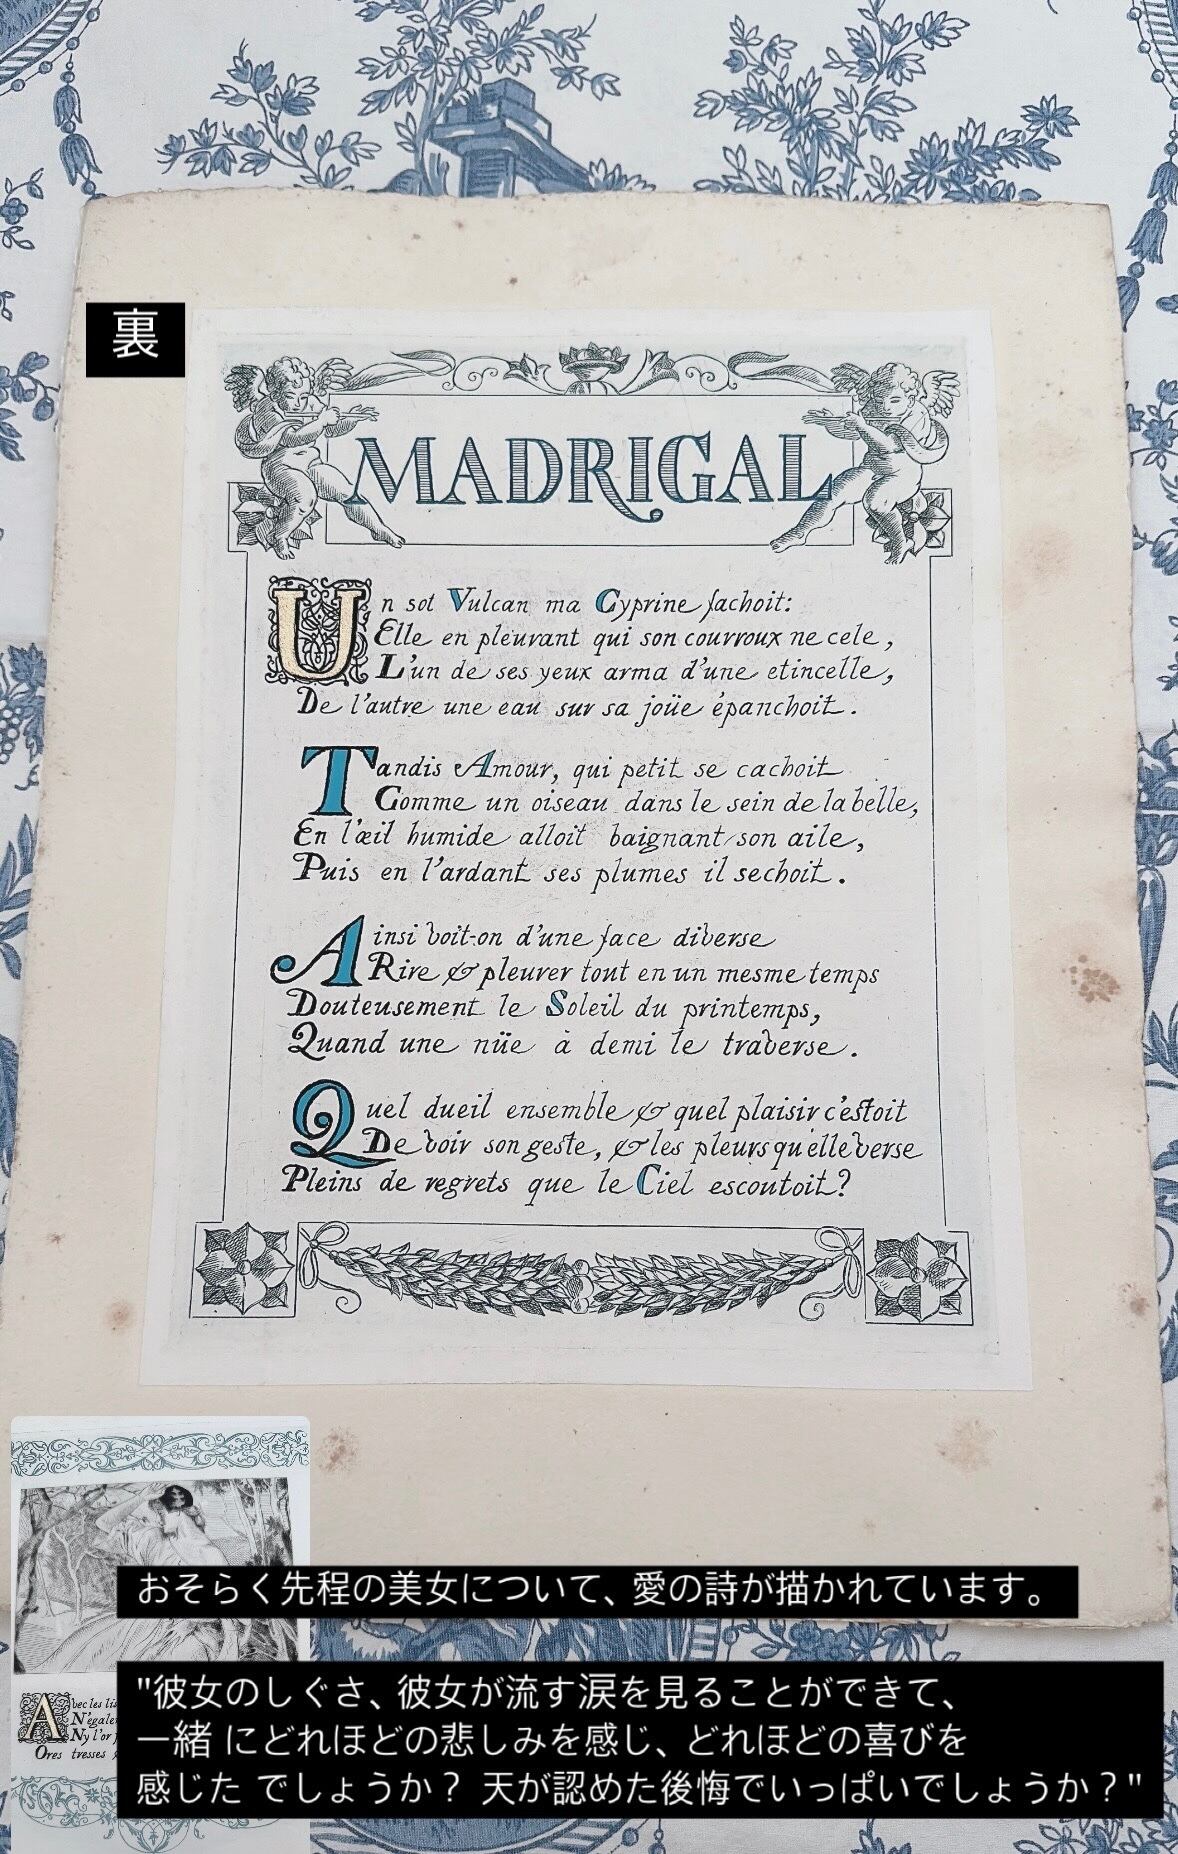 裏
MADRIGAL
Un sot Vulcan ma Cyprine fachoit:
Elle en pleurant qui son courroux ne cele,
L'un de ses yeux arma d'une etincelle,
De l'autre une eau sur sa joüe épanchoit.
Tandis Amour, qui petit se cachoit
Comme un oiseau dans le sein de la belle,
En l'œil humide alloit baignant son aile,
Puis en l'ardant ses plumes il sechoit.
Ainsi voit-on d'une face diverse
Rire & pleurer tout en un mesme temps
Douteusement le Soleil du printemps,
Quand une nüe à demi le traverse.
Quel dueil ensemble & quel plaisir c'estoit
De voir son geste, & les pleurs qu'elle verse
Pleins de regrets que le Ciel escoutoit?
Avec les lis
N'egaler
Ny l'or
Ores tresses
おそらく先程の美女について、愛の詩が描かれています。
"彼女のしぐさ、彼女が流す涙を見ることができて、
一緒 にどれほどの悲しみを感じ、どれほどの喜びを
感じた でしょうか？ 天が認めた後悔でいっぱいでしょうか？"